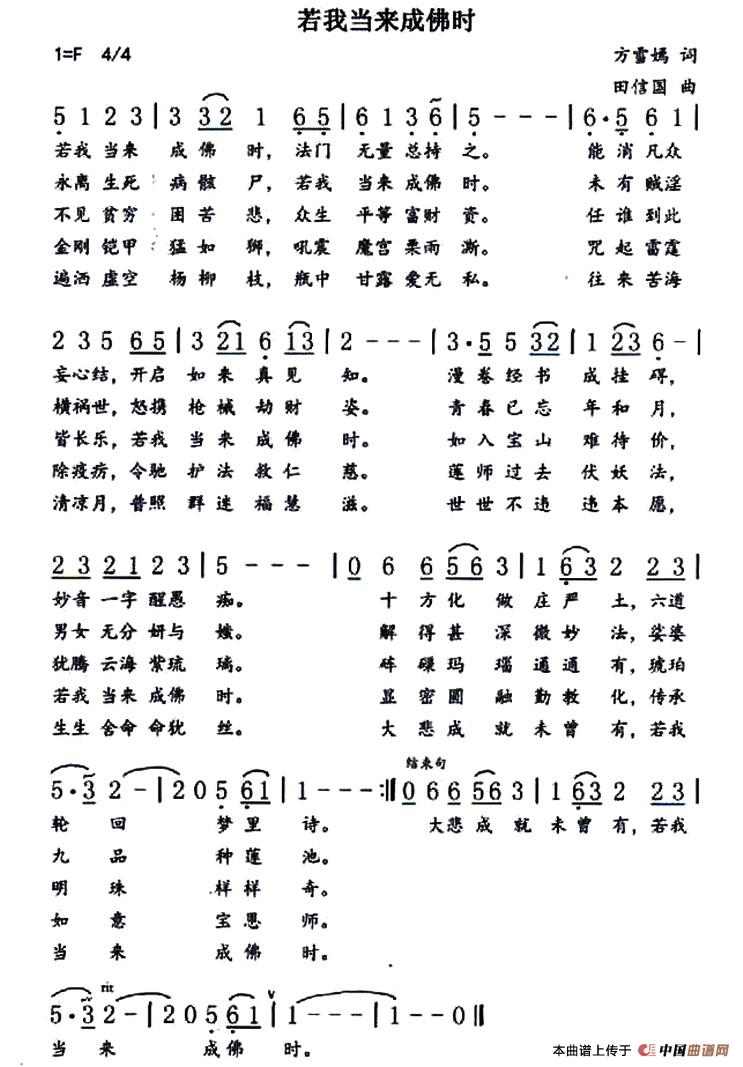 若我当来成佛时
1=F 4/4
方雪嫣 词
田信国 曲
5 1 2 3 | 3 3 2 1 6 5 | 6 1 3 6 | 5 - - - | 6 · 5 6 1 |
若我 当来 成佛 时, 法门 无量 总持 之。 能消凡众
永离 生死 病骸 尸, 若我 当来 成佛 时。 未有贼淫
不见 贫穷 困苦 悲, 众生 平等 富财 资。 任谁到此
金刚 铠甲 猛如 狮, 吼震 魔宫 栗雨 澌。 咒起雷霆
遍洒 虚空 杨柳 枝, 瓶中 甘露 爱无 私。 往来苦海
2 3 5 6 5 | 3 2 1 6 1 3 | 2 - - - | 3 · 5 5 3 2 | 1 2 3 6 - |
妄心结, 开启 如来真见 知。 漫卷经书 成挂碍,
横祸世, 怒携 枪械劫财 姿。 青春已忘 年和月,
皆长乐, 若我 当来成佛 时。 如入宝山 难待价,
除疫疠, 令驰 护法救仁 慈。 莲师过去 伏妖法,
清凉月, 普照 群迷福慧 滋。 世世不违 违本愿,
2 3 2 1 2 3 | 5 - - - | 0 6 6 5 6 3 | 1 6 3 2 2 3 |
妙音 一字 醒愚 痴。 十方化 做庄严 土, 六道
男女 无分 妍与 媸。 解得甚 深微妙 法, 娑婆
犹腾 云海 紫琉 璃。 砗磲玛 瑙通通 有, 琥珀
若我 当来 成佛 时。 显密圆 融勤教 化, 传承
生生 舍命 命犹 丝。 大悲成 就未曾 有, 若我
结束句
5 · 3 2 - | 2 0 5 6 1 | 1 - - - :‖ 0 6 6 5 6 3 | 1 6 3 2 2 3 |
轮回 梦里 诗。 大悲成就未曾有, 若我
九品 种莲 池。
明珠 样样 奇。
如意 宝恩 师。
当来 成佛 时。
rit
5 · 3 2 - | 2 0 5 6 1 | 1 - - - | 1 - - 0 ‖
当来 成佛 时。
本曲谱上传于 中国曲谱网